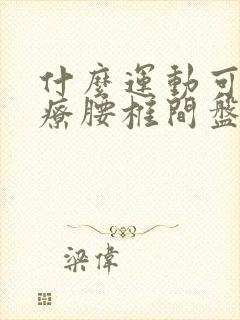 什麼運動可
療腰椎間盤
梁偉